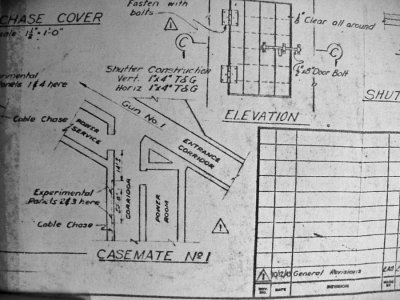 CHASE COVER
Scale 1½"=1'-0"
Fasten with
bolts
⅛" Clear all around
C
C
Door Bolt
Shutter Construction
Vert. 1"x4" T&G
Horiz 1"x4" T&G
ELEVATION
SHUT
Experimental
Panels 1&4 here
Cable Chase
POWER
SERVICE
Gun No.1
ENTRANCE
CORRIDOR
Experimental
Panels 2&3 here
CORRIDOR
POWER
ROOM
Cable Chase
CASEMATE No 1
General Revisions
DATE
REVISION